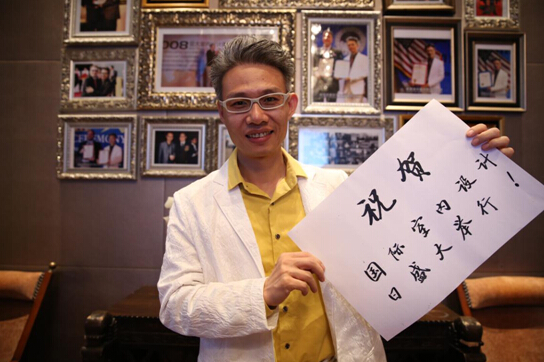 008
祝贺
国际室内设计
日盛大举行!